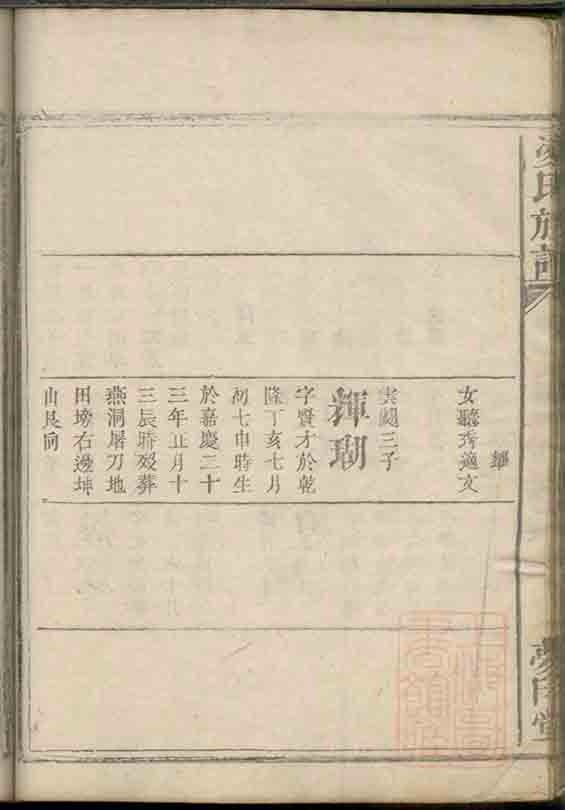 氏族譜
女聽秀適文
雲闕三子
輝瑚
字賢才於乾
隆丁亥七月
初七申時生
於嘉慶二十
三年五月十
三辰時歿葬
燕洞屠刀地
田塝右邊坤
山艮向